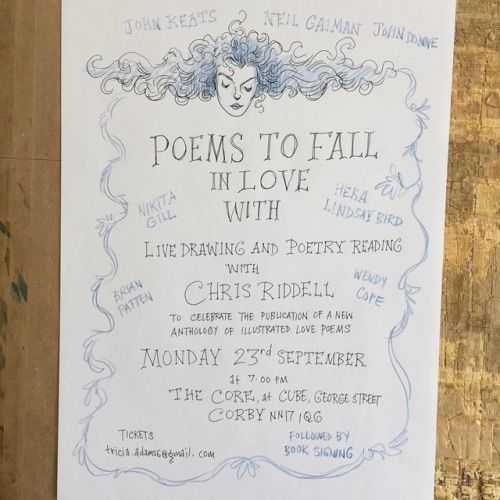 JOHN KEATS NEIL GAIMAN JOHN DONNE
POEMS TO FALL
IN LOVE
WITH
NIKITA
GILL
HERA
LINDSAY BIRD
LIVE DRAWING AND POETRY READING
WITH
CHRIS RIDDELL
BRIAN
PATTEN
WENDY
COPE
TO CELEBRATE THE PUBLICATION OF A NEW
ANTHOLOGY OF ILLUSTRATED LOVE POEMS
MONDAY 23rd SEPTEMBER
at 7.00 PM
THE CORE, at CUBE, GEORGE STREET
CORBY NN17 1QG
TICKETS
tricia.adams6@gmail.com
FOLLOWED BY
BOOK SIGNING